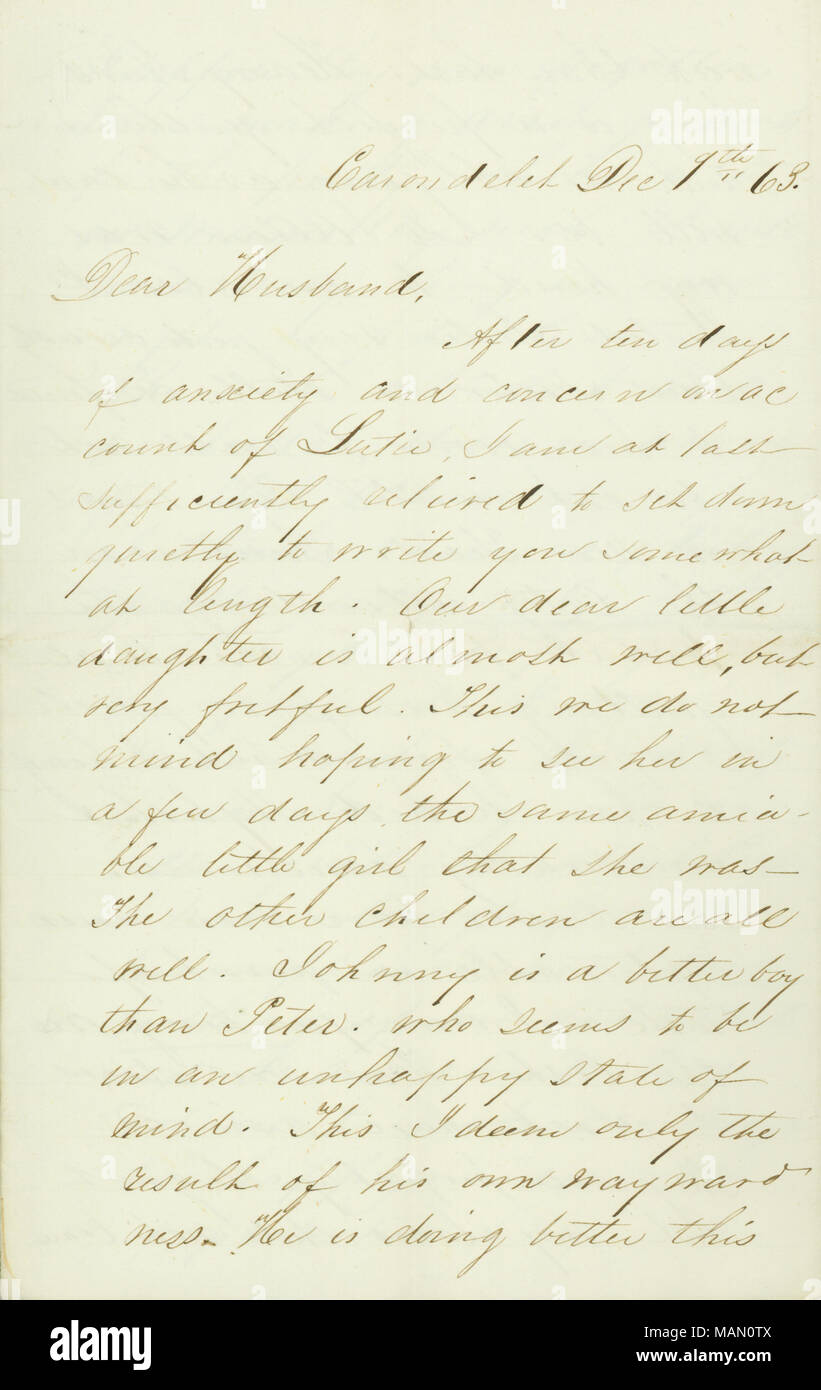 Carondelet Dec 9th 63.
Dear Husband,
After ten days
of anxiety and concern on ac
count of Lutie, I am at last
sufficiently relieved to set down
quietly to write you somewhat
at length. Our dear little
daughter is almost well, but
very fretful. This we do not
mind hoping to see her in
a few days the same amia-
ble little girl that she was—
The other children are all
well. Johnny is a better boy
than Peter. who seems to be
in an unhappy state of
mind. This I deem only the
result of his own wayward
ness. He is doing better this
alamy
alamy
alamy
alamy
Image ID: MAN0TX
www.alamy.com